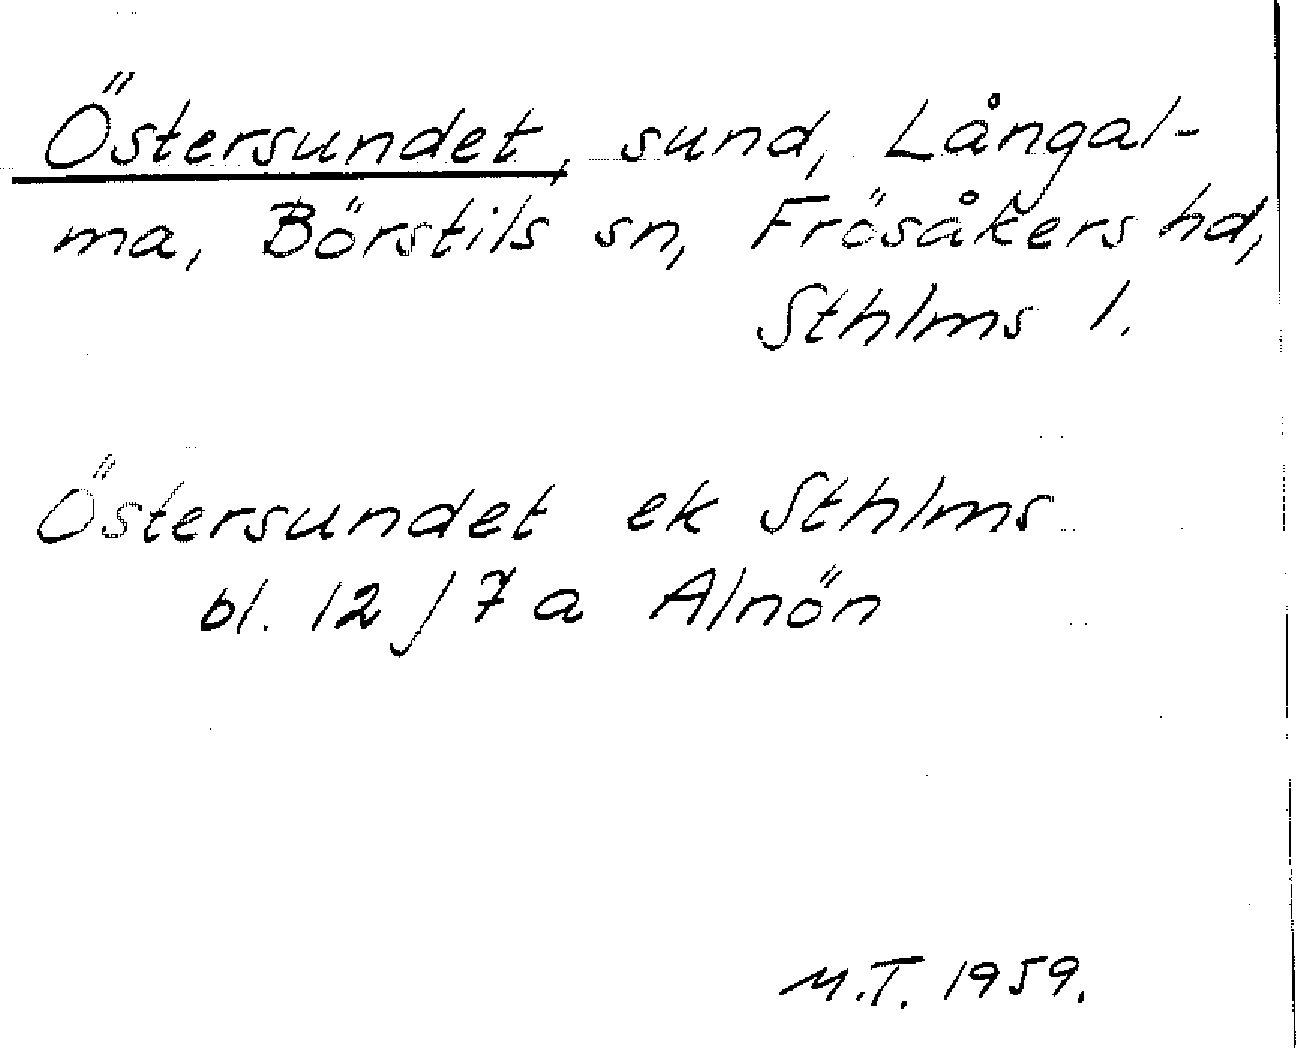 Östersundet, sund, Långal-
ma, Börstils sn, Frösåkers hd,
Sthlms l.
Östersundet ek Sthlms
bl. 12 j 7 a Alnön
M.T. 1959.